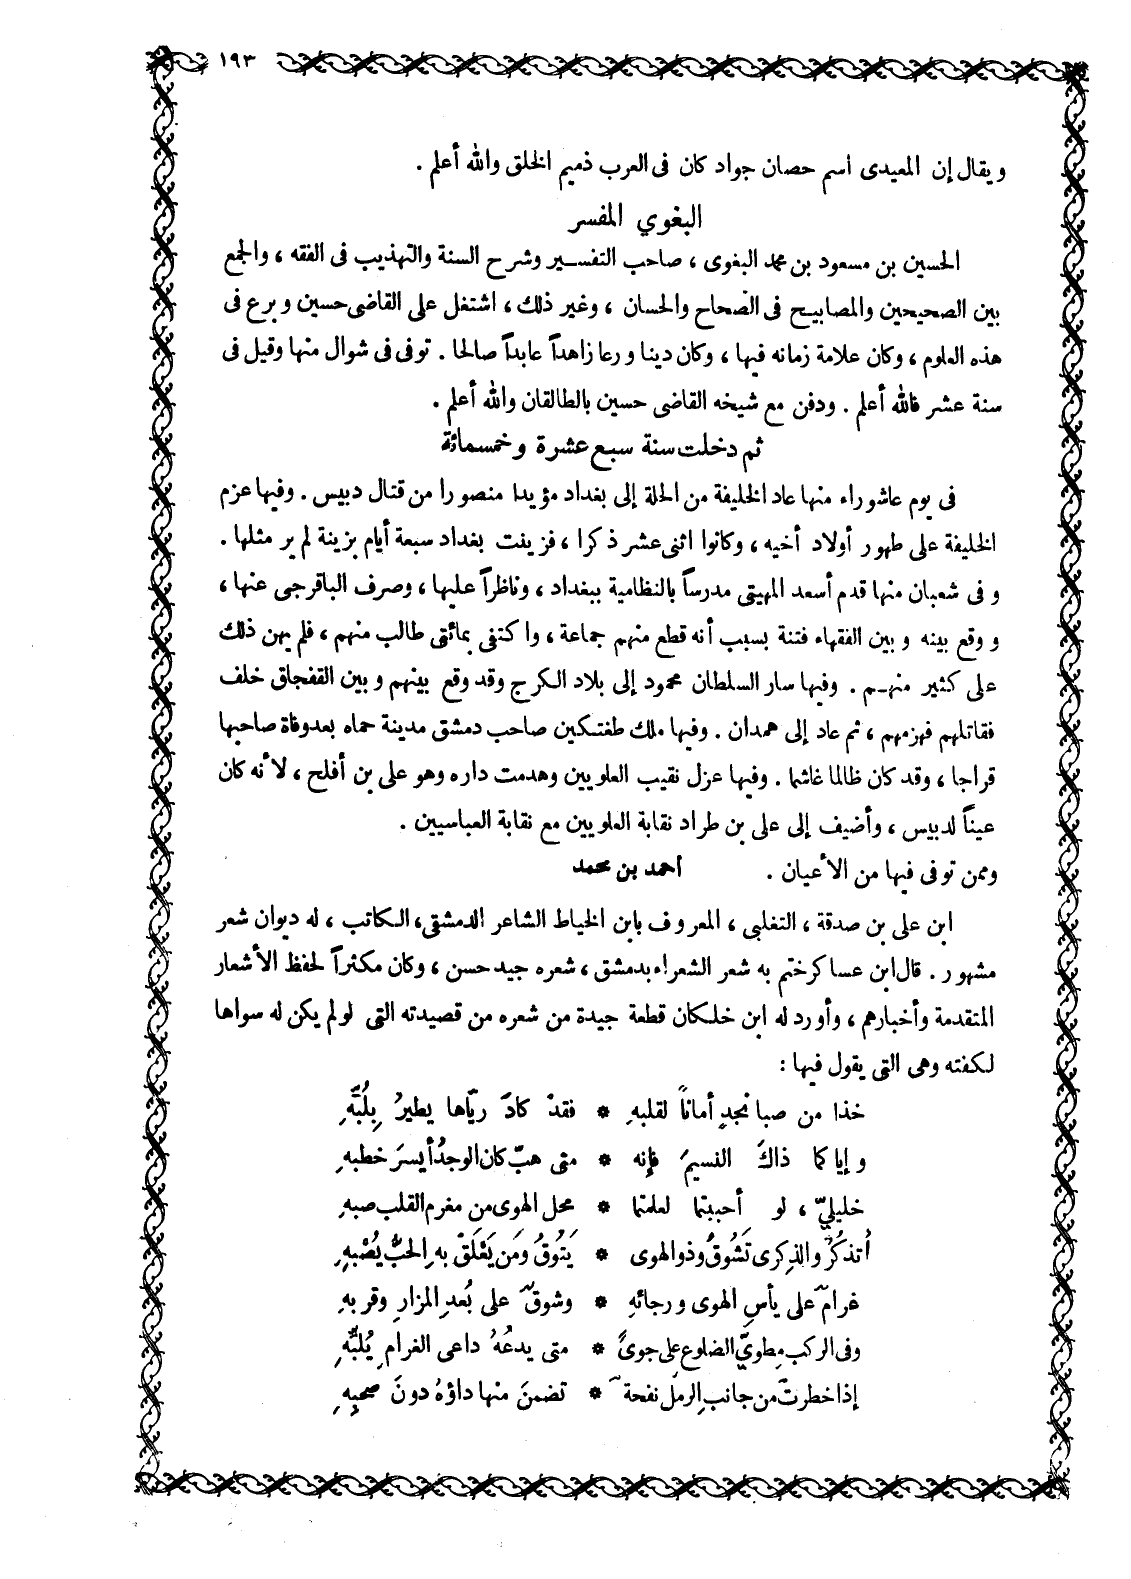 ١٩٣
ويقال إن المعيدى اسم حصان جواد كان فى العرب ذميم الخلق والله أعلم .
البغوي المفسر
الحسين بن مسعود بن محمد البغوى ، صاحب التفسير وشرح السنة والتهذيب فى الفقه ، والجمع
بين الصحيحين والمصابيح فى الصحاح والحسان ، وغير ذلك ، اشتغل على القاضى حسين وبرع فى
هذه العلوم ، وكان علامة زمانه فيها ، وكان دينا ورعا زاهداً عابداً صالحا . توفى فى شوال منها وقيل فى
سنة عشر فالله أعلم . ودفن مع شيخه القاضى حسين بالطالقان والله أعلم .
ثم دخلت سنة سبع عشرة وخمسمائة
فى يوم عاشوراء منها عاد الخليفة من الحلة إلى بغداد مؤيدا منصورا من قتال دبيس . وفيها عزم
الخليفة على طهور أولاد أخيه ، وكانوا اثنى عشر ذكرا ، فزينت بغداد سبعة أيام بزينة لم ير مثلها .
وفى شعبان منها قدم أسعد المهيتى مدرساً بالنظامية ببغداد ، وناظراً عليها ، وصرف الباقرجى عنها ،
ووقع بينه وبين الفقهاء فتنة بسبب أنه قطع منهم جماعة ، واكتفى بمائتى طالب منهم ، فلم يهن ذلك
على كثير منهم . وفيها سار السلطان محمود إلى بلاد الكرج وقد وقع بينهم وبين القفجاق خلف
فقاتلهم فهزمهم ، ثم عاد إلى همدان . وفيها ملك طغتكين صاحب دمشق مدينة حماه بعد وفاة صاحبها
قراجا ، وقد كان ظالما غاشما . وفيها عزل نقيب العلويين وهدمت داره وهو على بن أفلح ، لأنه كان
عيناً لدبيس ، وأضيف إلى على بن طراد نقابة العلويين مع نقابة العباسيين .
وممن توفى فيها من الأعيان . أحمد بن محمد
ابن على بن صدقة ، التغلبى ، المعروف بابن الخياط الشاعر الدمشقى ، الكاتب ، له ديوان شعر
مشهور . قال ابن عساكر ختم به شعر الشعراء بدمشق ، شعره جيد حسن ، وكان مكثراً لحفظ الأشعار
المتقدمة وأخبارهم ، وأورد له ابن خلكان قطعة جيدة من شعره من قصيدته التى لو لم يكن له سواها
لكفته وهى التى يقول فيها :
خذا من صبا نجدٍ أماناً لقلبهِ * فقدْ كادَ ريّاها يطيرُ بِلُبّهِ
وإياكما ذاكَ النسيمَ فإنه * متى هبّ كان الوجدُ أيسرَ خطبهِ
خليليّ ، لو أحببتما لعلمتما * محل الهوى من مغرم القلب صبهِ
أتذكُرُ والذِكرى تَشُوقُ وذو الهوى * يَتُوقُ وَمَن يَعْلَقْ بهِ الحبُّ يُصْبهِ
غرامٌ على يأسِ الهوى ورجائهِ * وشوقٌ على بُعدِ المزارِ وقربهِ
وفى الركب مطويّ الضلوع على جوىً * متى يدعُهُ داعى الغرام يُلبّهِ
إذا خطرتْ من جانبِ الرملِ نفحة * تضمنَ منها داؤهُ دونَ صحبهِ